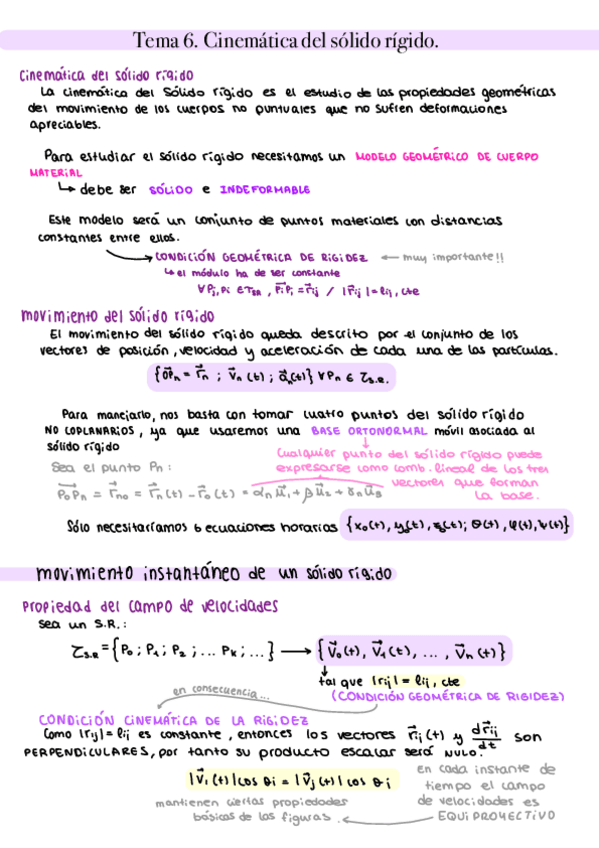 Tema 6. Cinemática del sólido rígido.
Cinemática del sólido rígido
La cinemática del sólido rígido es el estudio de las propiedades geométricas
del movimiento de los cuerpos no puntuales que no sufren deformaciones
apreciables.
Para estudiar el sólido rígido necesitamos un MODELO GEOMÉTRICO DE CUERPO
MATERIAL
↳ debe ser SÓLIDO e INDEFORMABLE
Este modelo será un conjunto de puntos materiales con distancias
constantes entre ellos.
→ CONDICIÓN GEOMÉTRICA DE RIGIDEZ ← muy importante!!
↳ el módulo ha de ser constante
∀ Pj, Pi ∈ τSR, PiPj = r⃗ij / |r⃗ij| = lij, cte
Movimiento del sólido rígido
El movimiento del sólido rígido queda descrito por el conjunto de los
vectores de posición, velocidad y aceleración de cada una de las partículas.
{OPn = r⃗n ; v⃗n (t) ; a⃗n(t)} ∀ Pn ∈ τS.R.
Para manejarlo, nos basta con tomar cuatro puntos del sólido rígido
NO COPLANARIOS, ya que usaremos una BASE ORTONORMAL móvil asociada al
sólido rígido
Cualquier punto del sólido rígido puede
expresarse como comb. lineal de los tres
vectores que forman
la base.
Sea el punto Pn:
P0Pn = r⃗n0 = r⃗n(t) - r⃗0(t) = αn u⃗1 + β u⃗2 + γn u⃗3
Sólo necesitaríamos 6 ecuaciones horarias {x0(t), y0(t), z0(t); θ(t), φ(t), ψ(t)}
Movimiento instantáneo de un sólido rígido
Propiedad del campo de velocidades
Sea un S.R.:
τS.R = {P0 ; P1 ; P2 ; ... PK ; ...} → {V⃗0(t), V⃗1(t), ..., V⃗n(t)}
tal que |rij| = lij, cte
(CONDICIÓN GEOMÉTRICA DE RIGIDEZ)
en consecuencia...
CONDICIÓN CINEMÁTICA DE LA RIGIDEZ
Como |rij| = lij es constante, entonces los vectores r⃗ij(t) y dr⃗ij/dt son
PERPENDICULARES, por tanto su producto escalar será NULO.
|V⃗i(t)| cos θi = |V⃗j(t)| cos θj
en cada instante de
tiempo el campo
de velocidades es
EQUIPROYECTIVO
mantienen ciertas propiedades
básicas de las figuras.